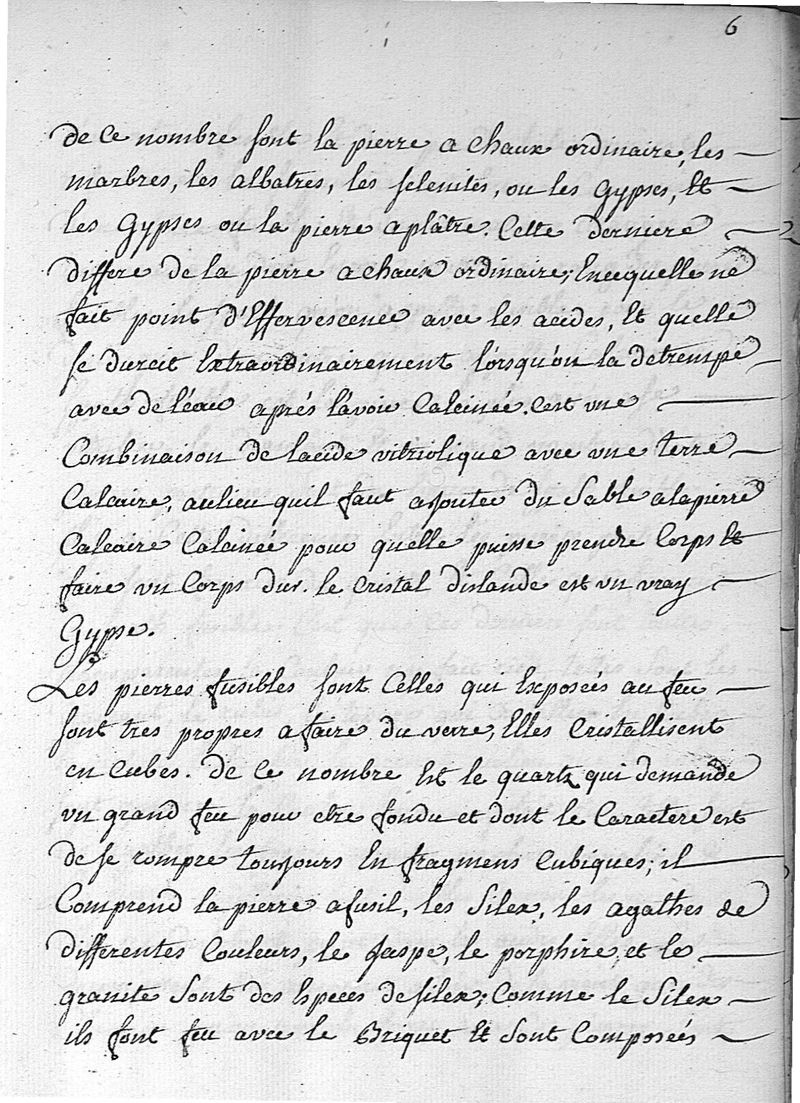 6
de ce nombre sont la pierre a chaux ordinaire, les
marbres, les albatres, les selenites, ou les Gypses, Et
les Gypses ou la pierre a plâtre. Cette derniere
differe de la pierre a chaux ordinaire, Encequelle ne
fait point d'Effervescence avec les acides, Et quelle
se durcit Extraordinairement lorsqu'on la detrempe
avec de l'éau aprés l'avoir Calcinée. c'est une
Combinaison de lacide vitriolique avec une terre
Calcaire, aulieu quil faut ajouter du Sable a lapierre
Calcaire Calcinée pour quelle puisse prendre Corps Et
faire un Corps dur. le cristal dislande est un vray
Gypse.
Les pierres fusibles sont Celles qui Exposées au feu
sont tres propres a faire du verre, Elles Cristallisent
en cubes. De Ce nombre Est le quartz qui demande
un grand feu pour etre fondu et dont le Caractere est
de se rompre toujours En fragmens Cubiques; il
Comprend la pierre a fusil, les Silex, les agathes de
differentes Couleurs, le Jaspe, le porphire, et le
granite Sont des Especes de silex; Comme le Silex
ils font feu avec le Briquet Et Sont Composées